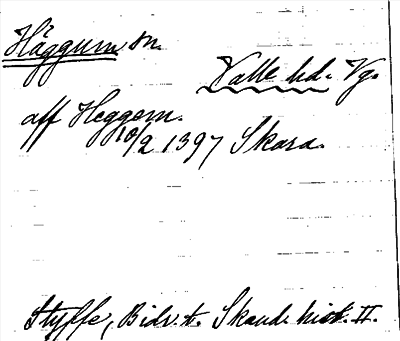 Häggum sn.
Valle hd. Vg.
aff Heggem.
10/2 1397 Skara.
Styffe, Bidr. t. Skand. hist. II.